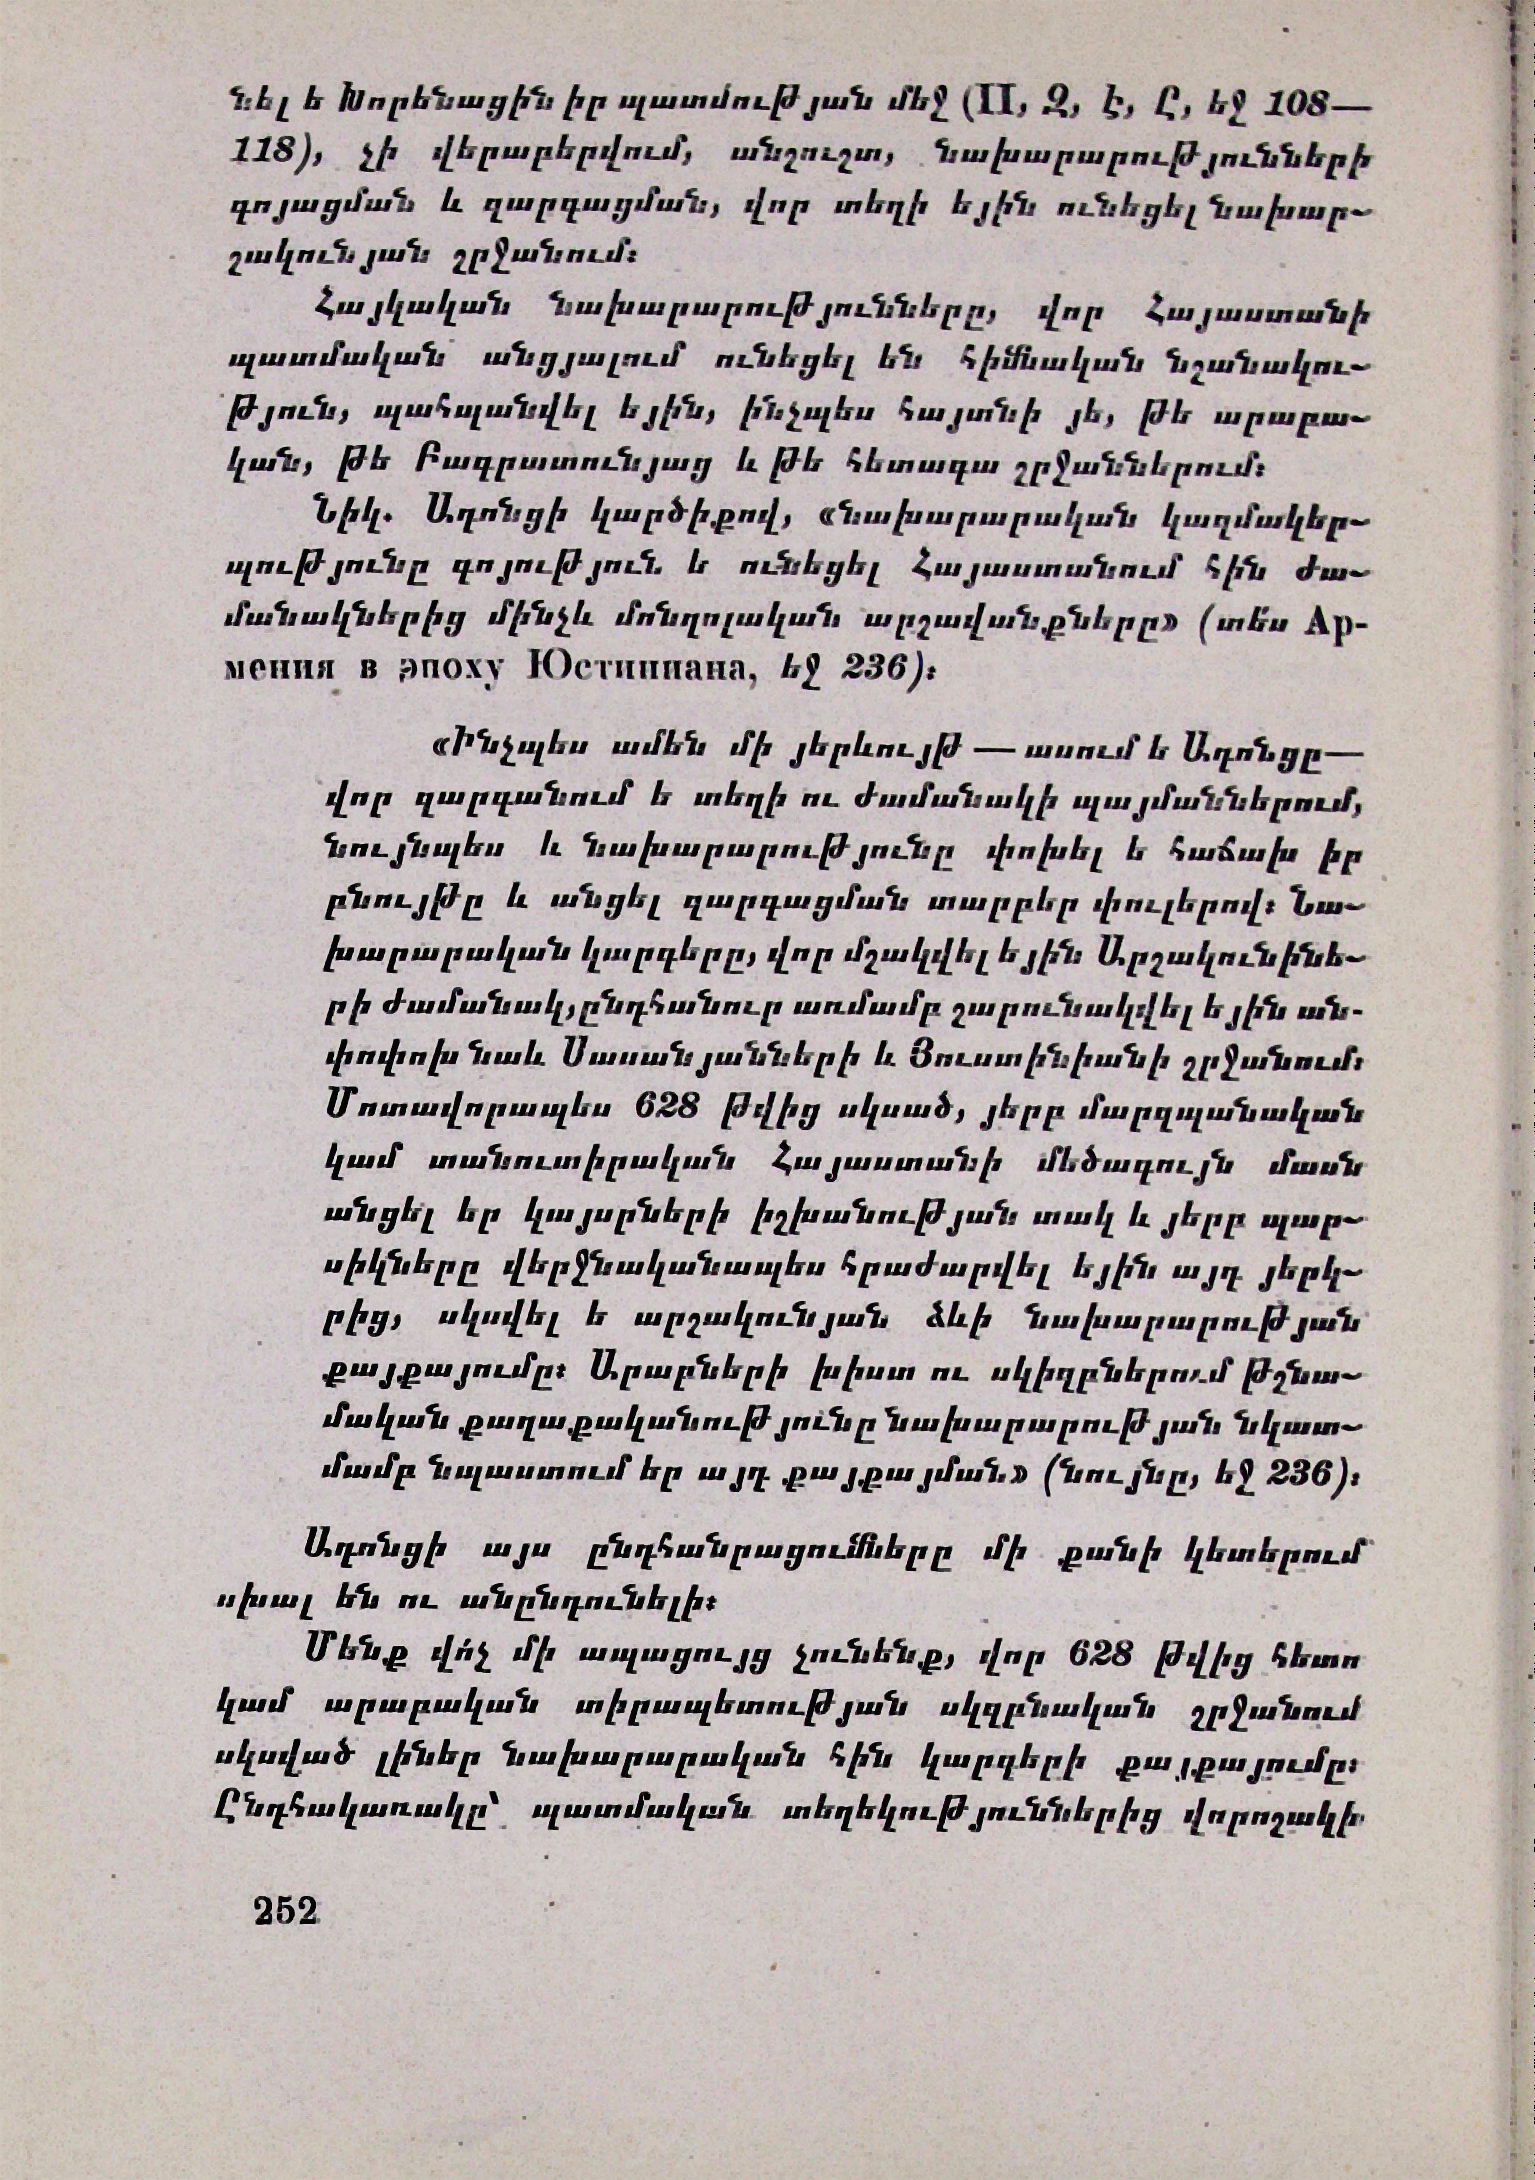 նել ե Խորենացին իր պատմության մեջ (II, Զ, Է, Ը, եջ 108—
118), չի վերաբերվում, անշուշտ, նախարարությունների
գոյացման և զարգացման, վոր տեղի եյին ունեցել նախար-
շակունյան շրջանում։
Հայկական նախարարությունները, վոր Հայաստանի
պատմական անցյալում ունեցել են հիմնական նշանակու-
թյուն, պահպանվել եյին, ինչպես հայտնի յե, թե արաբա-
կան, թե Բագրատունյաց և թե հետագա շրջաններում։
Նիկ. Ադոնցի կարծիքով, «նախարարական կազմակեր-
պությունը գոյություն ե ունեցել Հայաստանում հին ժա-
մանակներից մինչև մոնղոլական արշավանքները» (տե՛ս Ар-
мения в эпоху Юстиниана, եջ 236)։
«Ինչպես ամեն մի յերևույթ — ասում ե Ադոնցը—
վոր զարգանում ե տեղի ու ժամանակի պայմաններում,
նույնպես և նախարարությունը փոխել ե հաճախ իր
բնույթը և անցել զարգացման տարբեր փուլերով։ Նա-
խարարական կարգերը, վոր մշակվել եյին Արշակունինե-
րի ժամանակ, ընդհանուր առմամբ շարունակվել եյին ան-
փոփոխ նաև Սասանյանների և Յուստինիանի շրջանում։
Մոտավորապես 628 թվից սկսած, յերբ մարզպանական
կամ տանուտիրական Հայաստանի մեծագույն մասն
անցել եր կայսրների իշխանության տակ և յերբ պար-
սիկները վերջնականապես հրաժարվել եյին այդ յերկ-
րից, սկսվել ե արշակունյան ձևի նախարարության
քայքայումը։ Արաբների խիստ ու սկիզբներում թշնա-
մական քաղաքականությունը նախարարության նկատ-
մամբ նպաստում եր այդ քայքայման» (նույնը, եջ 236)։
Ադոնցի այս ընդհանրացումները մի քանի կետերում
սխալ են ու անընդունելի։
Մենք վո՛չ մի ապացույց չունենք, վոր 628 թվից հետո
կամ արաբական տիրապետության սկզբնական շրջանում
սկսված լիներ նախարարական հին կարգերի քայքայումը։
Ընդհակառակը՝ պատմական տեղեկություններից վորոշակի
252